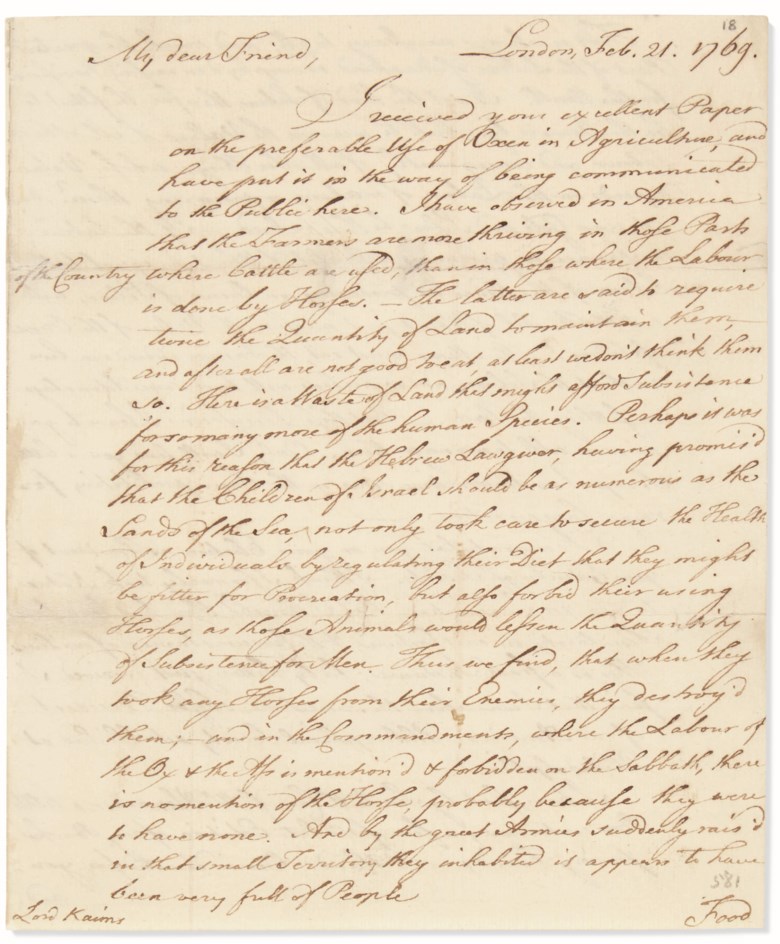 18
My dear Friend,
London, Feb. 21. 1769.
I received your excellent Paper
on the preferable Use of Oxen in Agriculture, and
have put it in the way of being communicated
to the Public here. I have observed in America
that the Farmers are more thriving in those Parts
of the Country where Cattle are used, than in those where the Labour
is done by Horses. — The latter are said to require
twice the Quantity of Land to maintain them,
and after all are not good to eat, at least we don't think them
so. Here is a Waste of Land that might afford Subsistence
for so many more of the human Species. Perhaps it was
for this reason that the Hebrew Lawgiver, having promis'd
that the Children of Israel should be as numerous as the
Sands of the Sea, not only took care to secure the Health
of Individuals by regulating their Diet that they might
be fitter for Procreation, but also forbid their using
Horses, as those Animals would lessen the Quantity
of Subsistence for Men. Thus we find, that when they
took any Horses from their Enemies, they destroy'd
them; — and in the Commandments, where the Labour of
the Ox & the Ass is mention'd & forbidden on the Sabbath, there
is no mention of the Horse, probably because they were
to have none. And by the great Armies suddenly rais'd
in that small Territory they inhabited it appears to have
been very full of People
581
Lord Kaims
Food